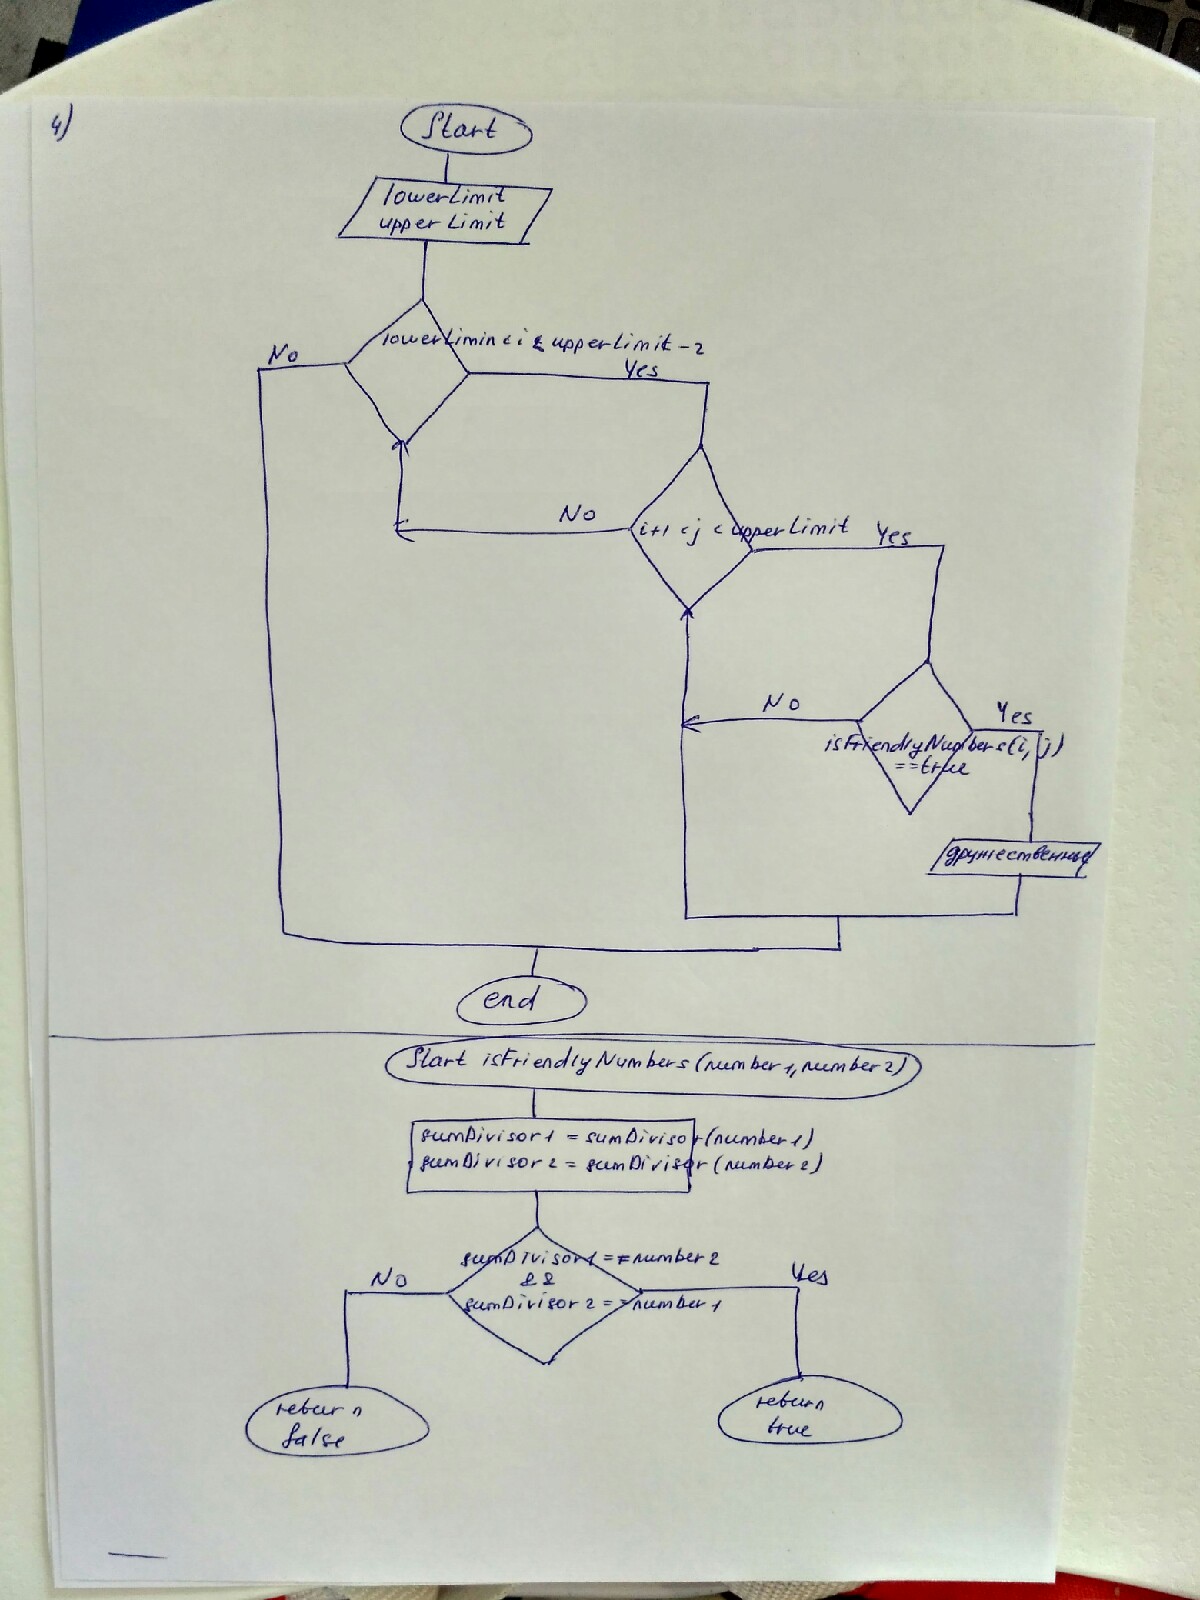 4)
Start
lowerLimit
upperLimit
lowerLimin < i ≤ upperLimit - 2
No
Yes
No
i+1 < j < upperLimit
Yes
No
Yes
isFriendlyNumbers(i, j)
==true
дружественные
end
Start isFriendlyNumbers(number1, number2)
sumDivisor1 = sumDivisor(number1)
sumDivisor2 = sumDivisor(number2)
sumDivisor1 == number2
&&
sumDivisor2 == number1
No
Yes
return
false
return
true